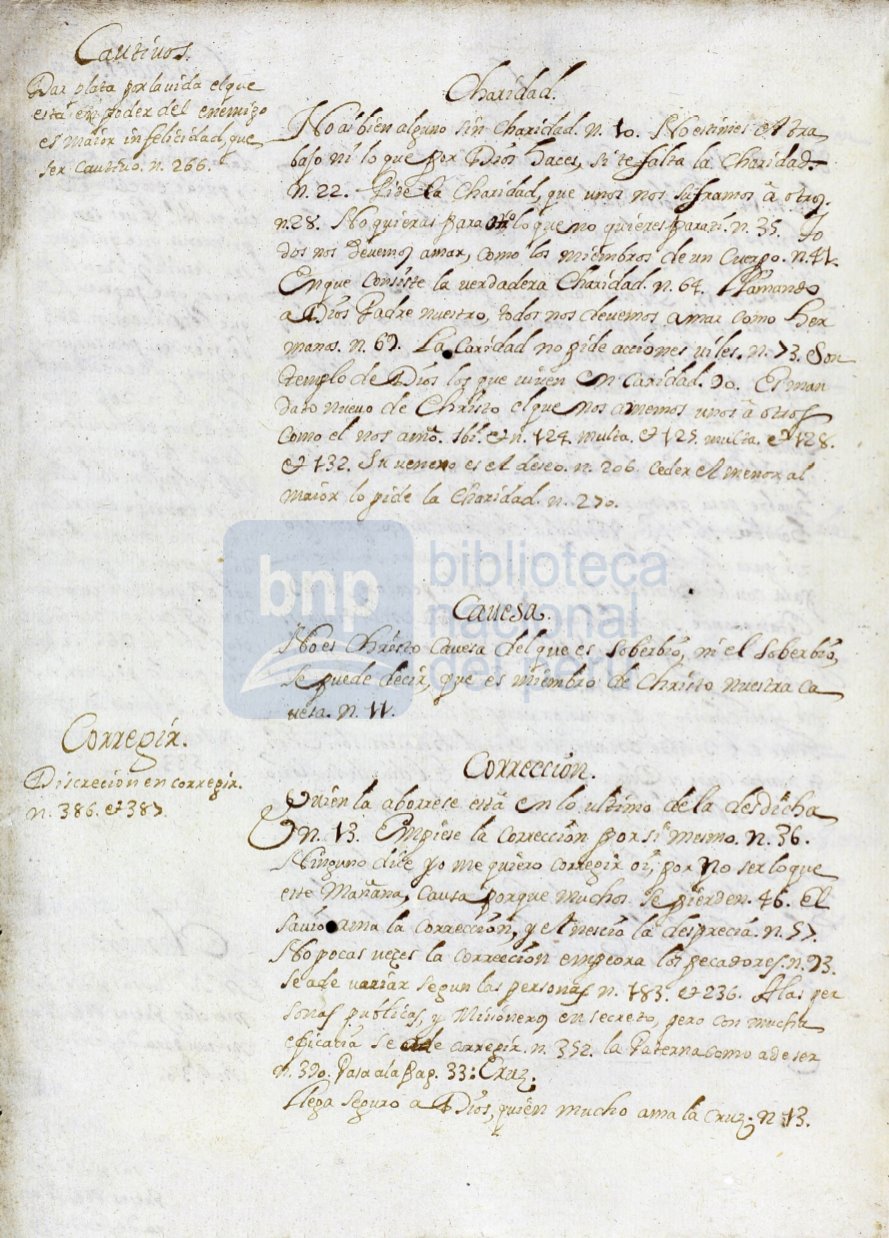 Cautivos.
Dar plata por la vida el que
está en poder del enemigo
es maior infelicidad, que
ser cautivo. n. 266.
Charidad.
No ai bien alguno sin Charidad. n. 10. No estimes el tra
bajo ni lo que por Dios haces, si te falta la Charidad
n. 22. Pide la Charidad, que unos nos suframos à otros.
n. 28. No quieras para otro lo que no quieres para ti. n. 35. To
dos nos devemos amar, como los miembros de un Cuerpo. n. 41.
En que consiste la verdadera Charidad. n. 64. Llamando
a Dios Padre nuestro, todos nos devemos amar como her
manos. n. 69. La Caridad no pide acciones viles. n. 73. Son
templo de Dios los que viven en Caridad. 90. Es man
dato nuevo de Christo el que nos amemos unos à otros
como el nos amó. Ibi. et n. 124. multa. et 125. multa. et 128.
et 132. Su veneno es el deseo. n. 206. Ceder el menor al
maior lo pide la Charidad. n. 270.
bnp biblioteca
nacional
del perú
Cavesa.
No es Christo Cavesa del que es soberbio, ni el soberbio,
se puede decir, que es miembro de Christo nuestra ca
vesa. n. 11.
Corregir.
Discrecion en corregir.
n. 386. et 387.
Correccion.
Quien la aborrese està en lo ultimo de la desdicha
n. 13. Empiese la Correccion por si mesmo. n. 36.
Ninguno dice yo me quiero corregir oi, por no ser lo que
este Mañana, Causa porque muchos se pierden. 46. El
savio ama la correccion, y el nescio la desprecia. n. 57.
No pocas veçes la correccion empeora los pecadores. n. 93.
se a de variar segun las personas n. 183. et 236. A las per
sonas publicas, y Misioneros en secreto, pero con mucha
eficatia se a de corregir. n. 352. la Paterna como a de ser
n. 390. Pasa a la Pag. 33: Cruz.
Llega seguro a Dios, quien mucho ama la Cruz. n 13.